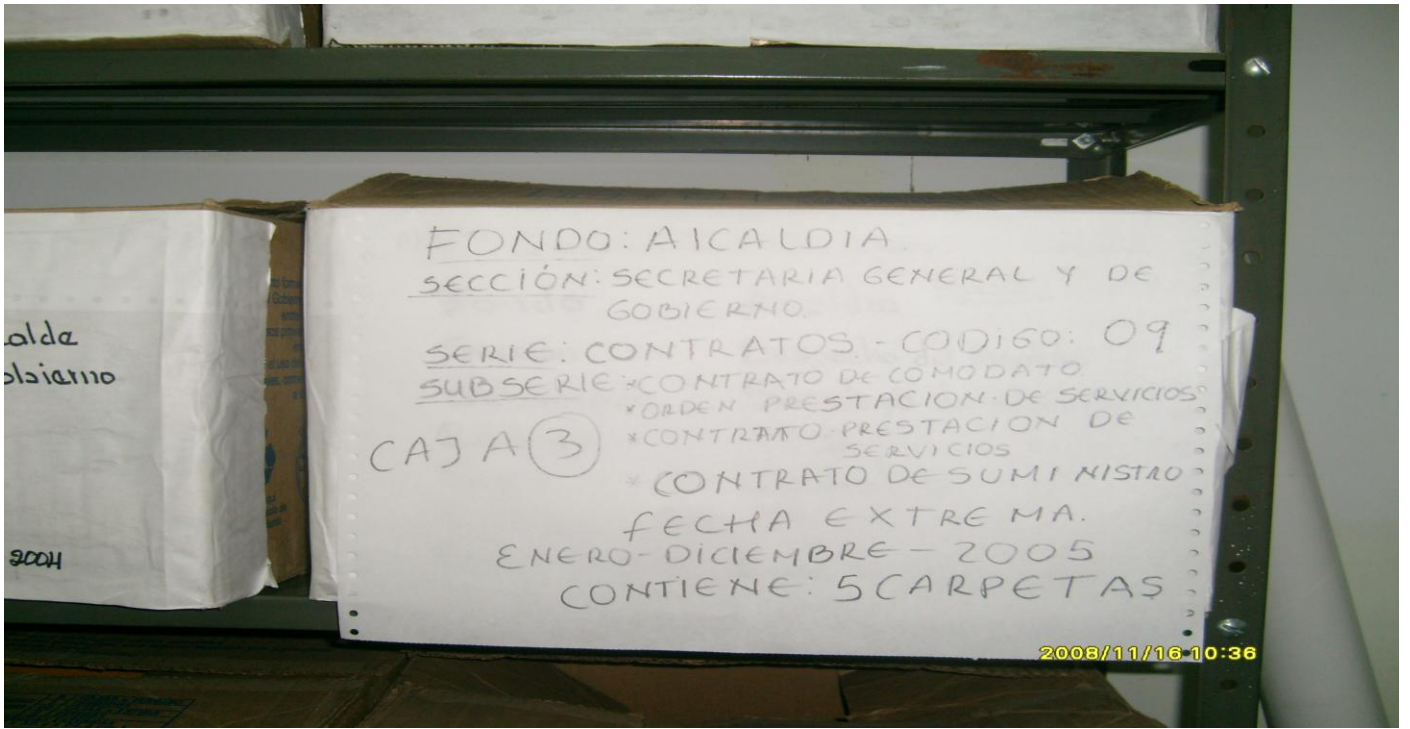 FONDO: AlCALDIA
SECCIÓN: SECRETARIA GENERAL Y DE
GOBIERNO.
SERIE: CONTRATOS - CODiGO: 09
SUBSERIE *CONTRATO DE COMODATO
*ORDEN PRESTACION DE SERVICIOS
*CONTRATO PRESTACION DE
SERVICIOS
CAJA 3
* CONTRATO DE SUMINISTRO
FECHA EXTREMA.
ENERO-DICIEMBRE - 2005
CONTIENE: 5 CARPETAS
alde
obierno
2004
2008/11/16 10:36